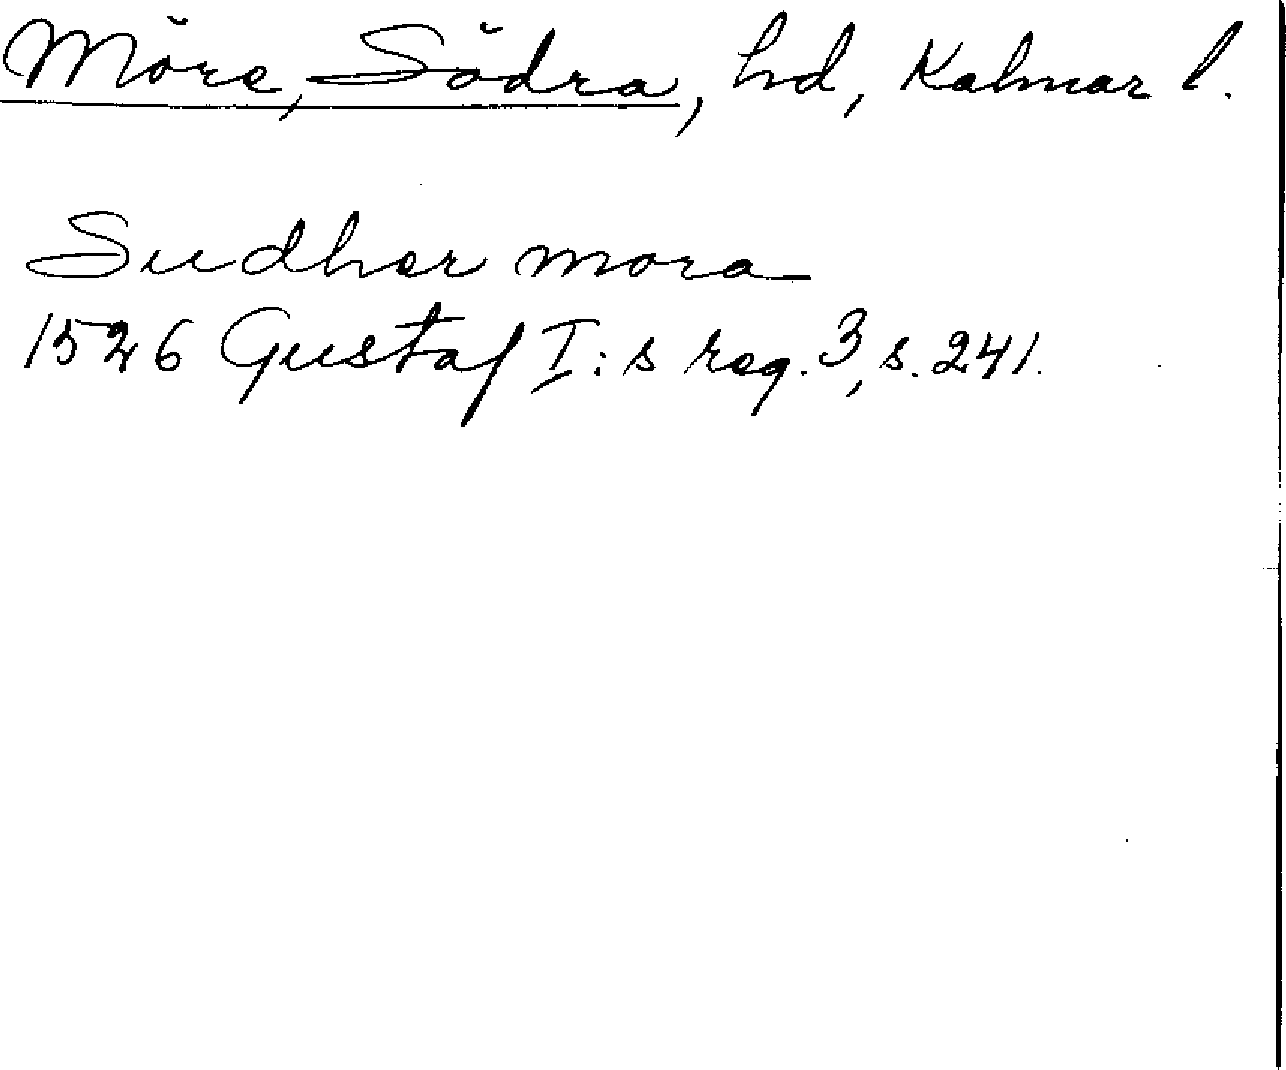 Möre, Södra, hd, Kalmar l.
Sudher mora
1526 Gustaf I:s reg. 3, s. 241.